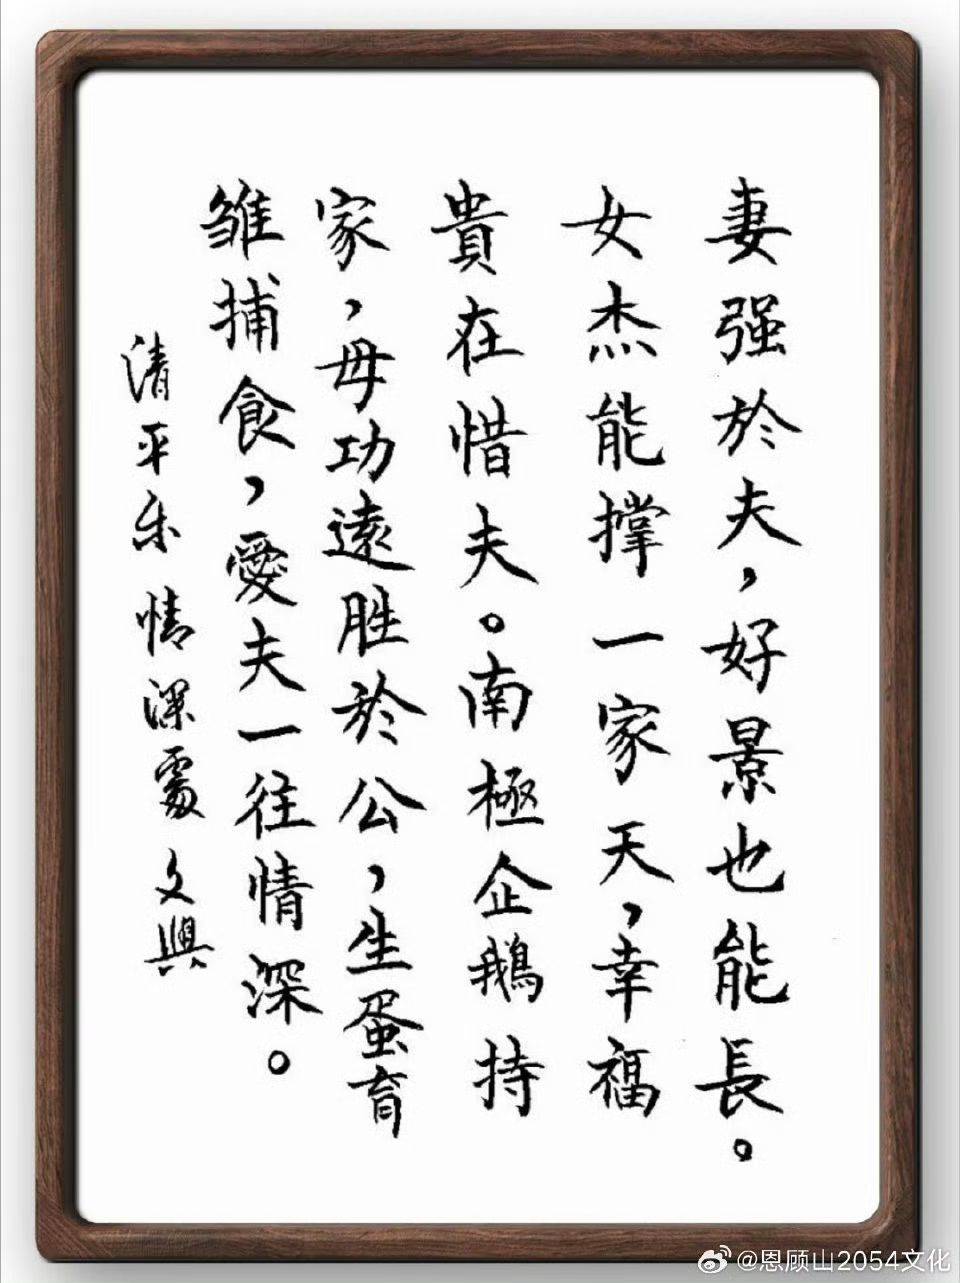 妻强於夫，好景也能長。
女杰能撑一家天，幸福
貴在惜夫。南極企鵝持
家，母功遠胜於公，生蛋育
雏捕食，愛夫一往情深。
清平乐 情深處 文興
@恩顾山2054文化